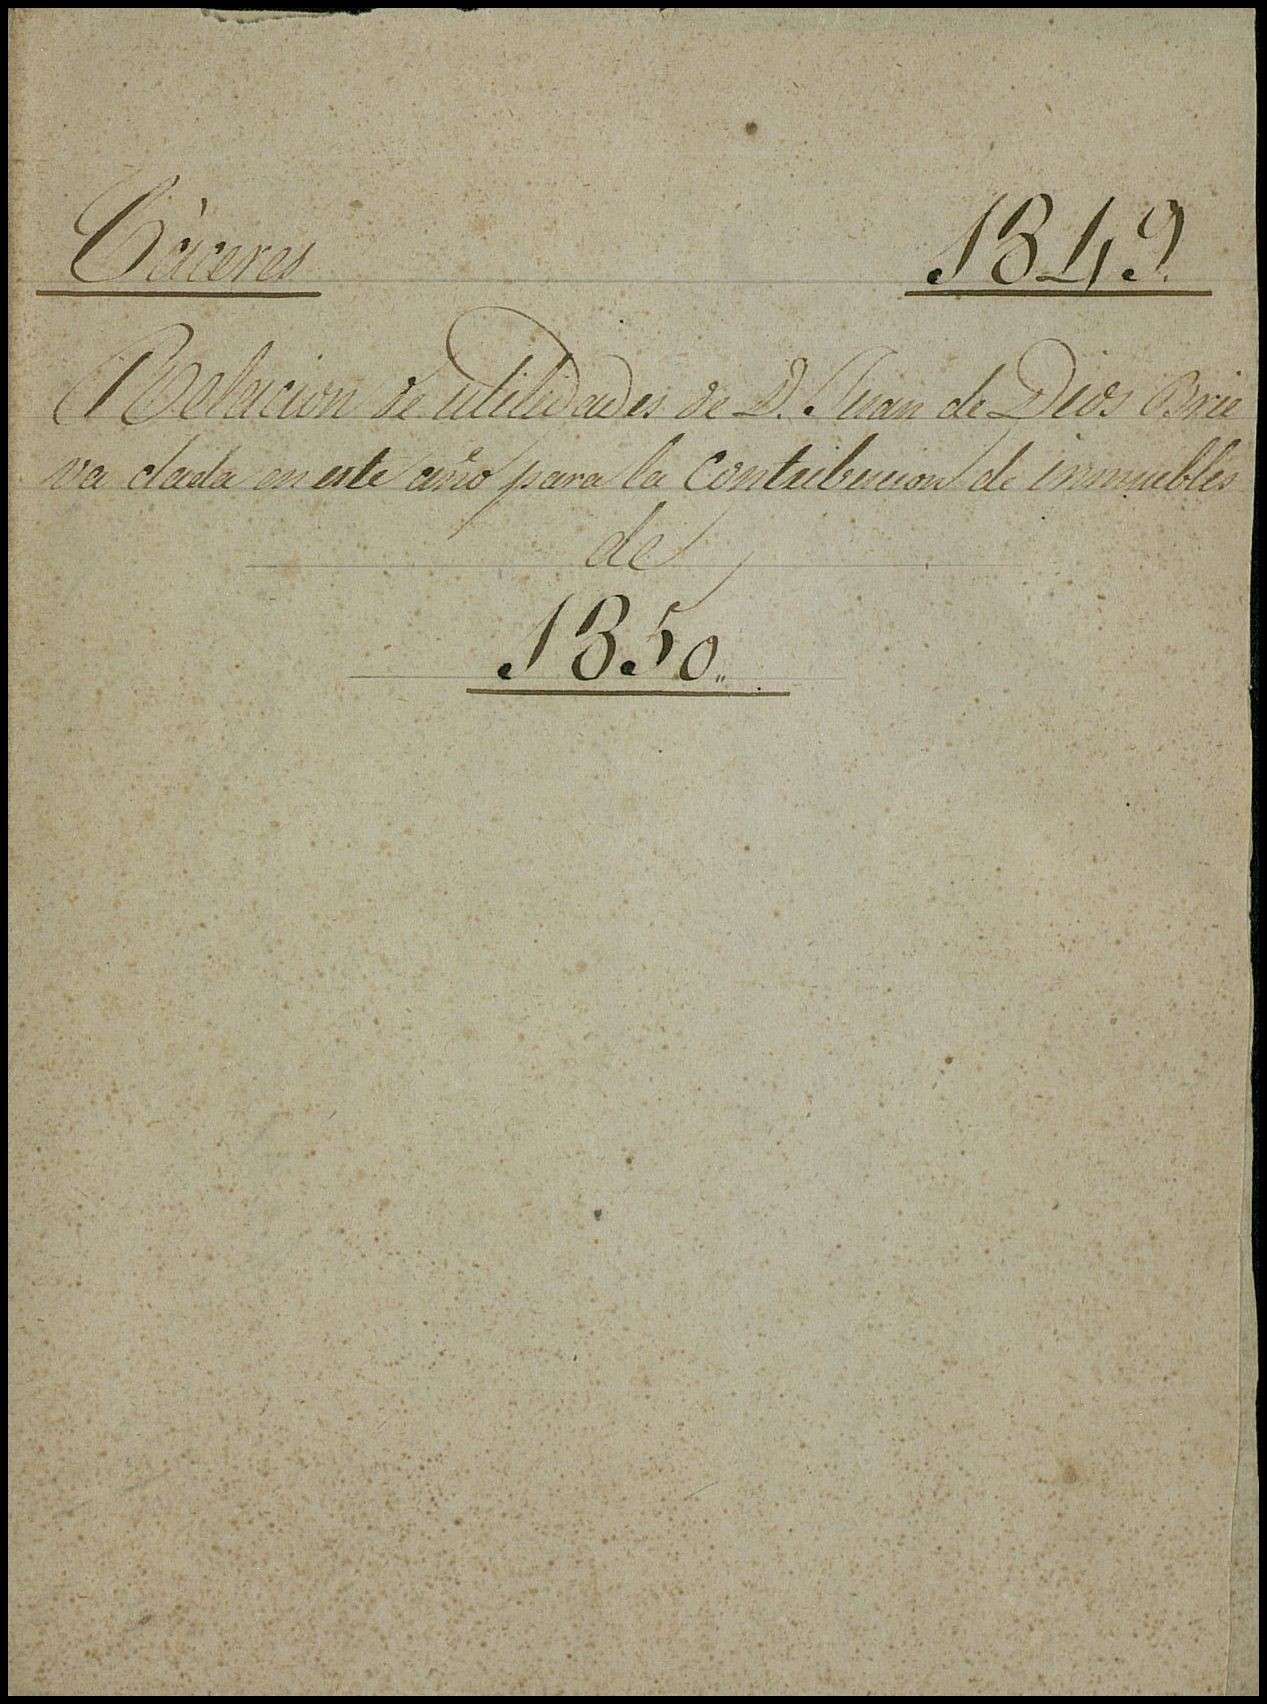 Cáceres 1849.
Relacion de utilidades de D. Juan de Dios Brie
va dada en este año para la contribucion de inmuebles
de
1850.